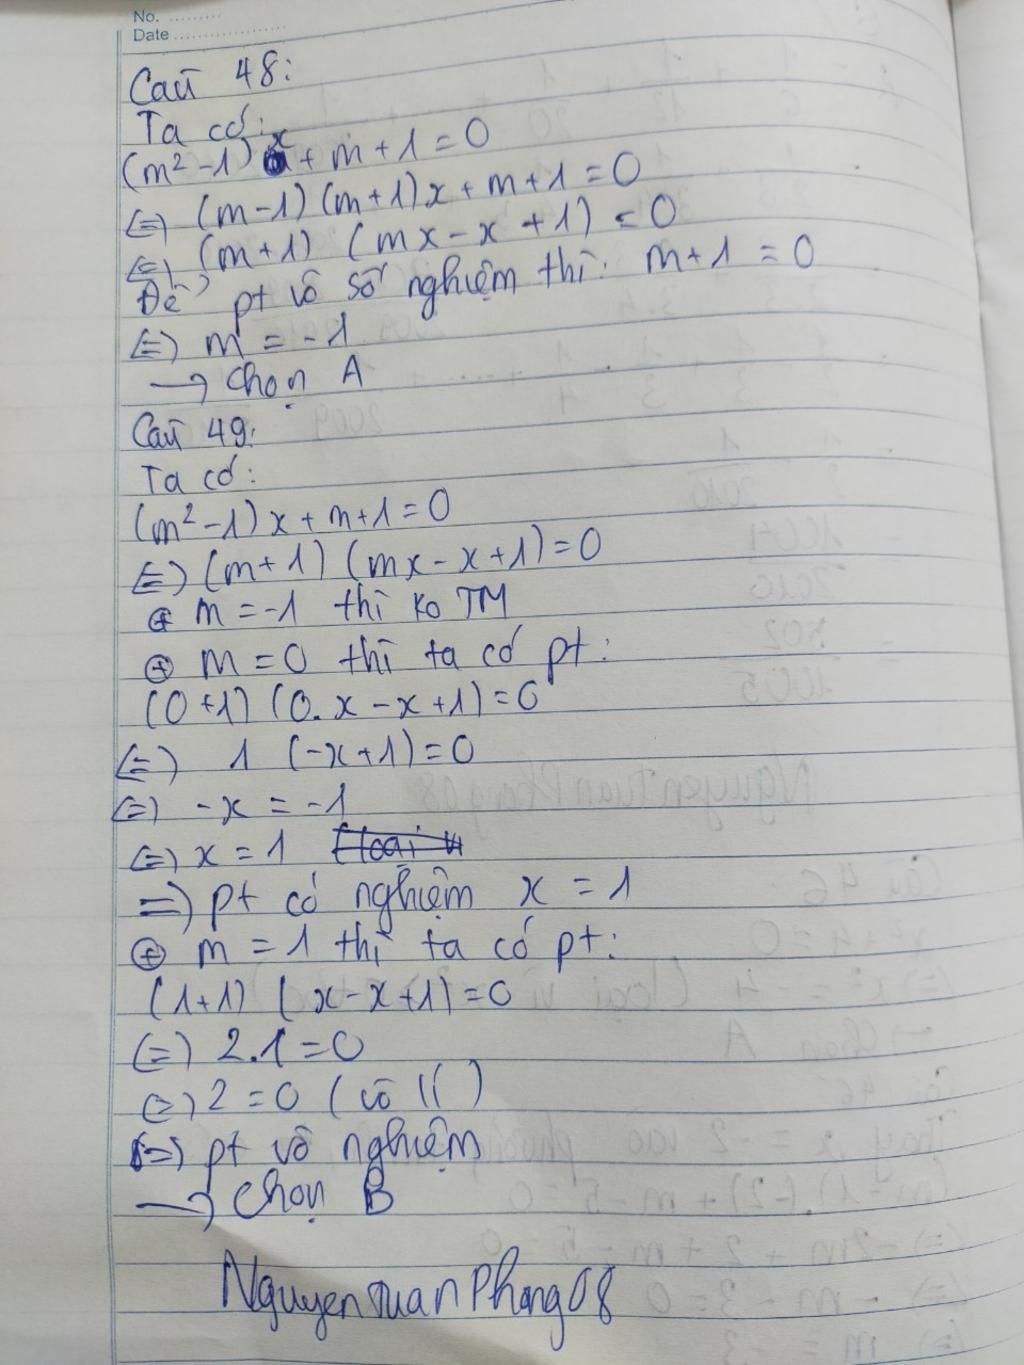 No. .........
Date ....................
Câu 48:
Ta có:
(m² -1) x + m + 1 = 0
(=) (m-1) (m+1)x + m+1 = 0
(=) (m+1) (mx - x +1) = 0
Để pt vô số nghiệm thì: m+1 = 0
(=) m = -1
→ Chọn A
Câu 49:
Ta có:
(m² -1)x + m+1 = 0
(=) (m+1) (mx - x +1) = 0
⊕ m = -1 thì ko TM
⊕ m = 0 thì ta có pt:
(0+1) (0. x - x +1) = 0
(=) 1 (-x+1) = 0
(=) -x = -1
(=) x = 1
=) pt có nghiệm x = 1
⊕ m = 1 thì ta có pt:
(1+1) (x - x +1) = 0
(=) 2.1 = 0
(=) 2 = 0 (vô lí)
(=) pt vô nghiệm
→ Chọn B
NguyenTuanPhong08